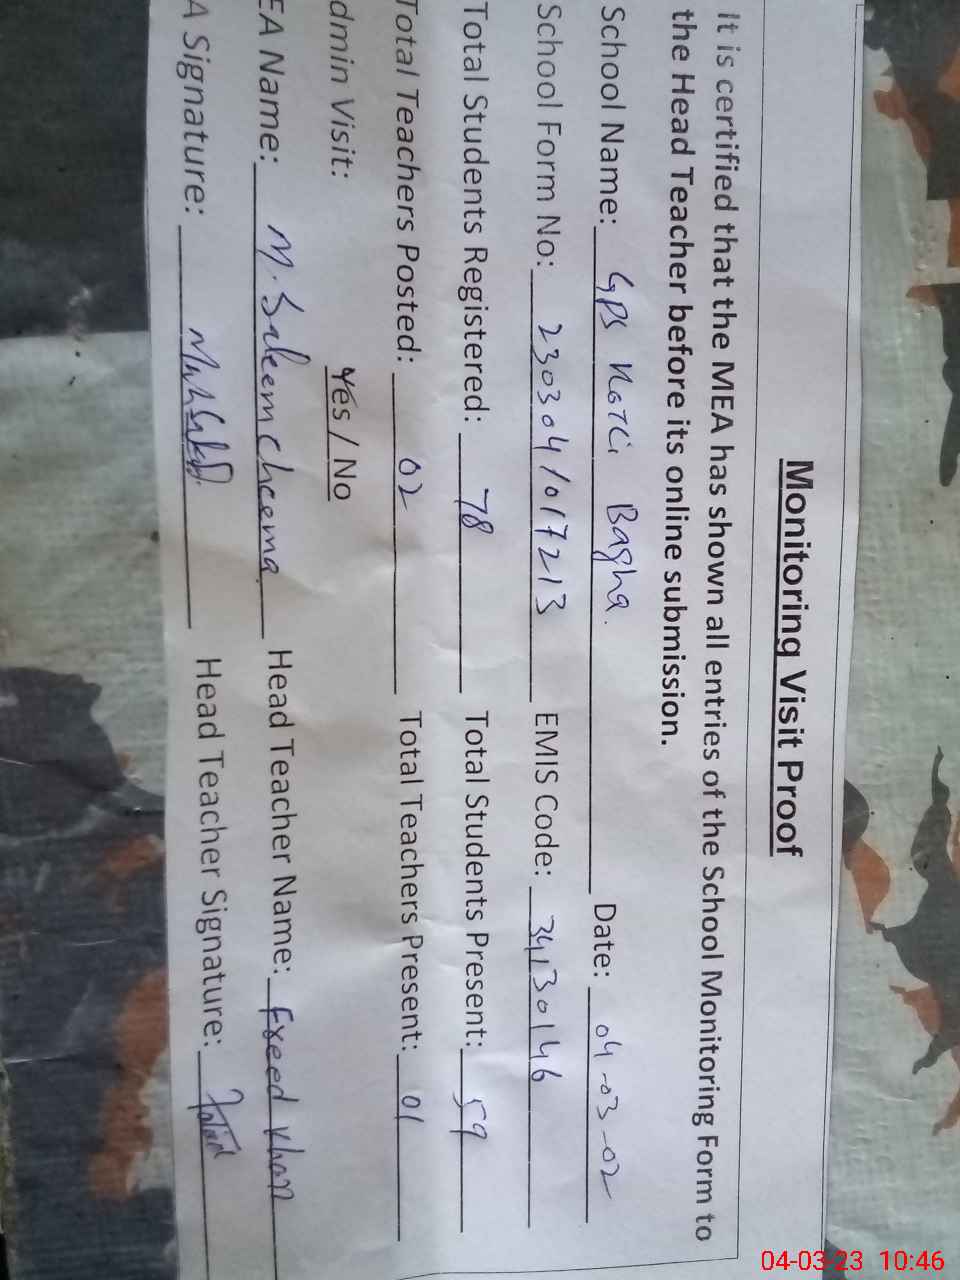 Monitoring Visit Proof
It is certified that the MEA has shown all entries of the School Monitoring Form to
the Head Teacher before its online submission.
School Name: GPS Kotli Bagha. Date: 04-03-02
School Form No: 230304/017213 EMIS Code: 34130146
Total Students Registered: 78 Total Students Present: 59
Total Teachers Posted: 02 Total Teachers Present: 01
dmin Visit: Yes / No
EA Name: M. Saleem Cheema Head Teacher Name: Khan
A Signature: Head Teacher Signature:
04-03-23 10:46